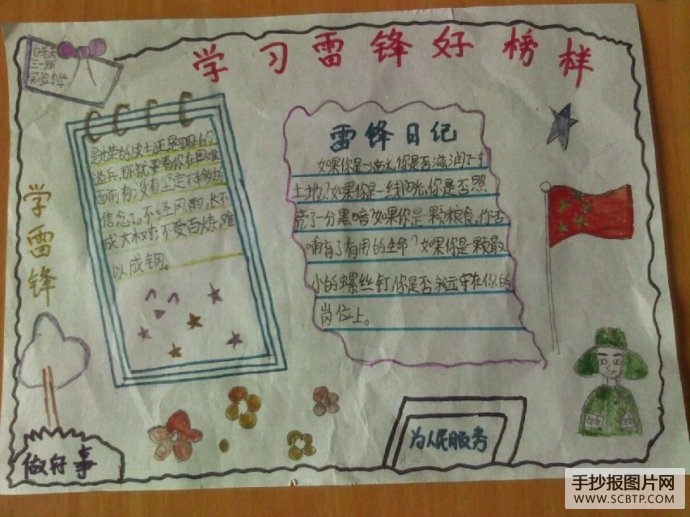 学习雷锋好榜样
三一班
是光荣的战士还是可耻的
逃兵,那就要看你在困难
面前有没有坚定不移的
信念了。不经风雨,长不
成大树;不受百炼,难
以成钢。
雷锋日记
如果你是一滴水,你是否滋润了一寸
土地?如果你是一线阳光,你是否照
亮了一分黑暗?如果你是一颗粮食,你是否
哺育了有用的生命?如果你是一颗最
小的螺丝钉,你是否永远守在你的
岗位上。
学雷锋
做好事
为人民服务
手抄报图片网
WWW.SCBTP.COM